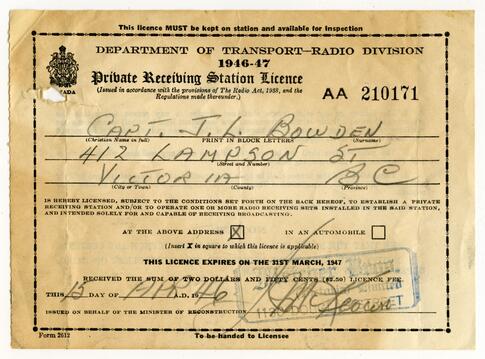 This licence MUST be kept on station and available for inspection
DEPARTMENT OF TRANSPORT—RADIO DIVISION
1946-47
Private Receiving Station Licence
(Issued in accordance with the provisions of The Radio Act, 1938, and the
Regulations made thereunder.)
AA 210171
CAPT. J. L. BOWDEN
(Christian Name in full) PRINT IN BLOCK LETTERS (Surname)
412 LAMPSON ST.
(Street and Number)
VICTORIA BC
(City or Town) (County) (Province)
IS HEREBY LICENSED, SUBJECT TO THE CONDITIONS SET FORTH ON THE BACK HEREOF, TO ESTABLISH A PRIVATE
RECEIVING STATION AND/OR TO OPERATE ONE OR MORE RADIO RECEIVING SETS INSTALLED IN THE SAID STATION,
AND INTENDED SOLELY FOR AND CAPABLE OF RECEIVING BROADCASTING.
AT THE ABOVE ADDRESS X IN AN AUTOMOBILE
(Insert X in square to which this licence is applicable)
THIS LICENCE EXPIRES ON THE 31ST MARCH, 1947
RECEIVED THE SUM OF TWO DOLLARS AND FIFTY CENTS ($2.50) LICENCE FEE.
THIS 15 DAY OF APR A.D. 1946
ISSUED ON BEHALF OF THE MINISTER OF RECONSTRUCTION
Form 2612
To be handed to Licensee